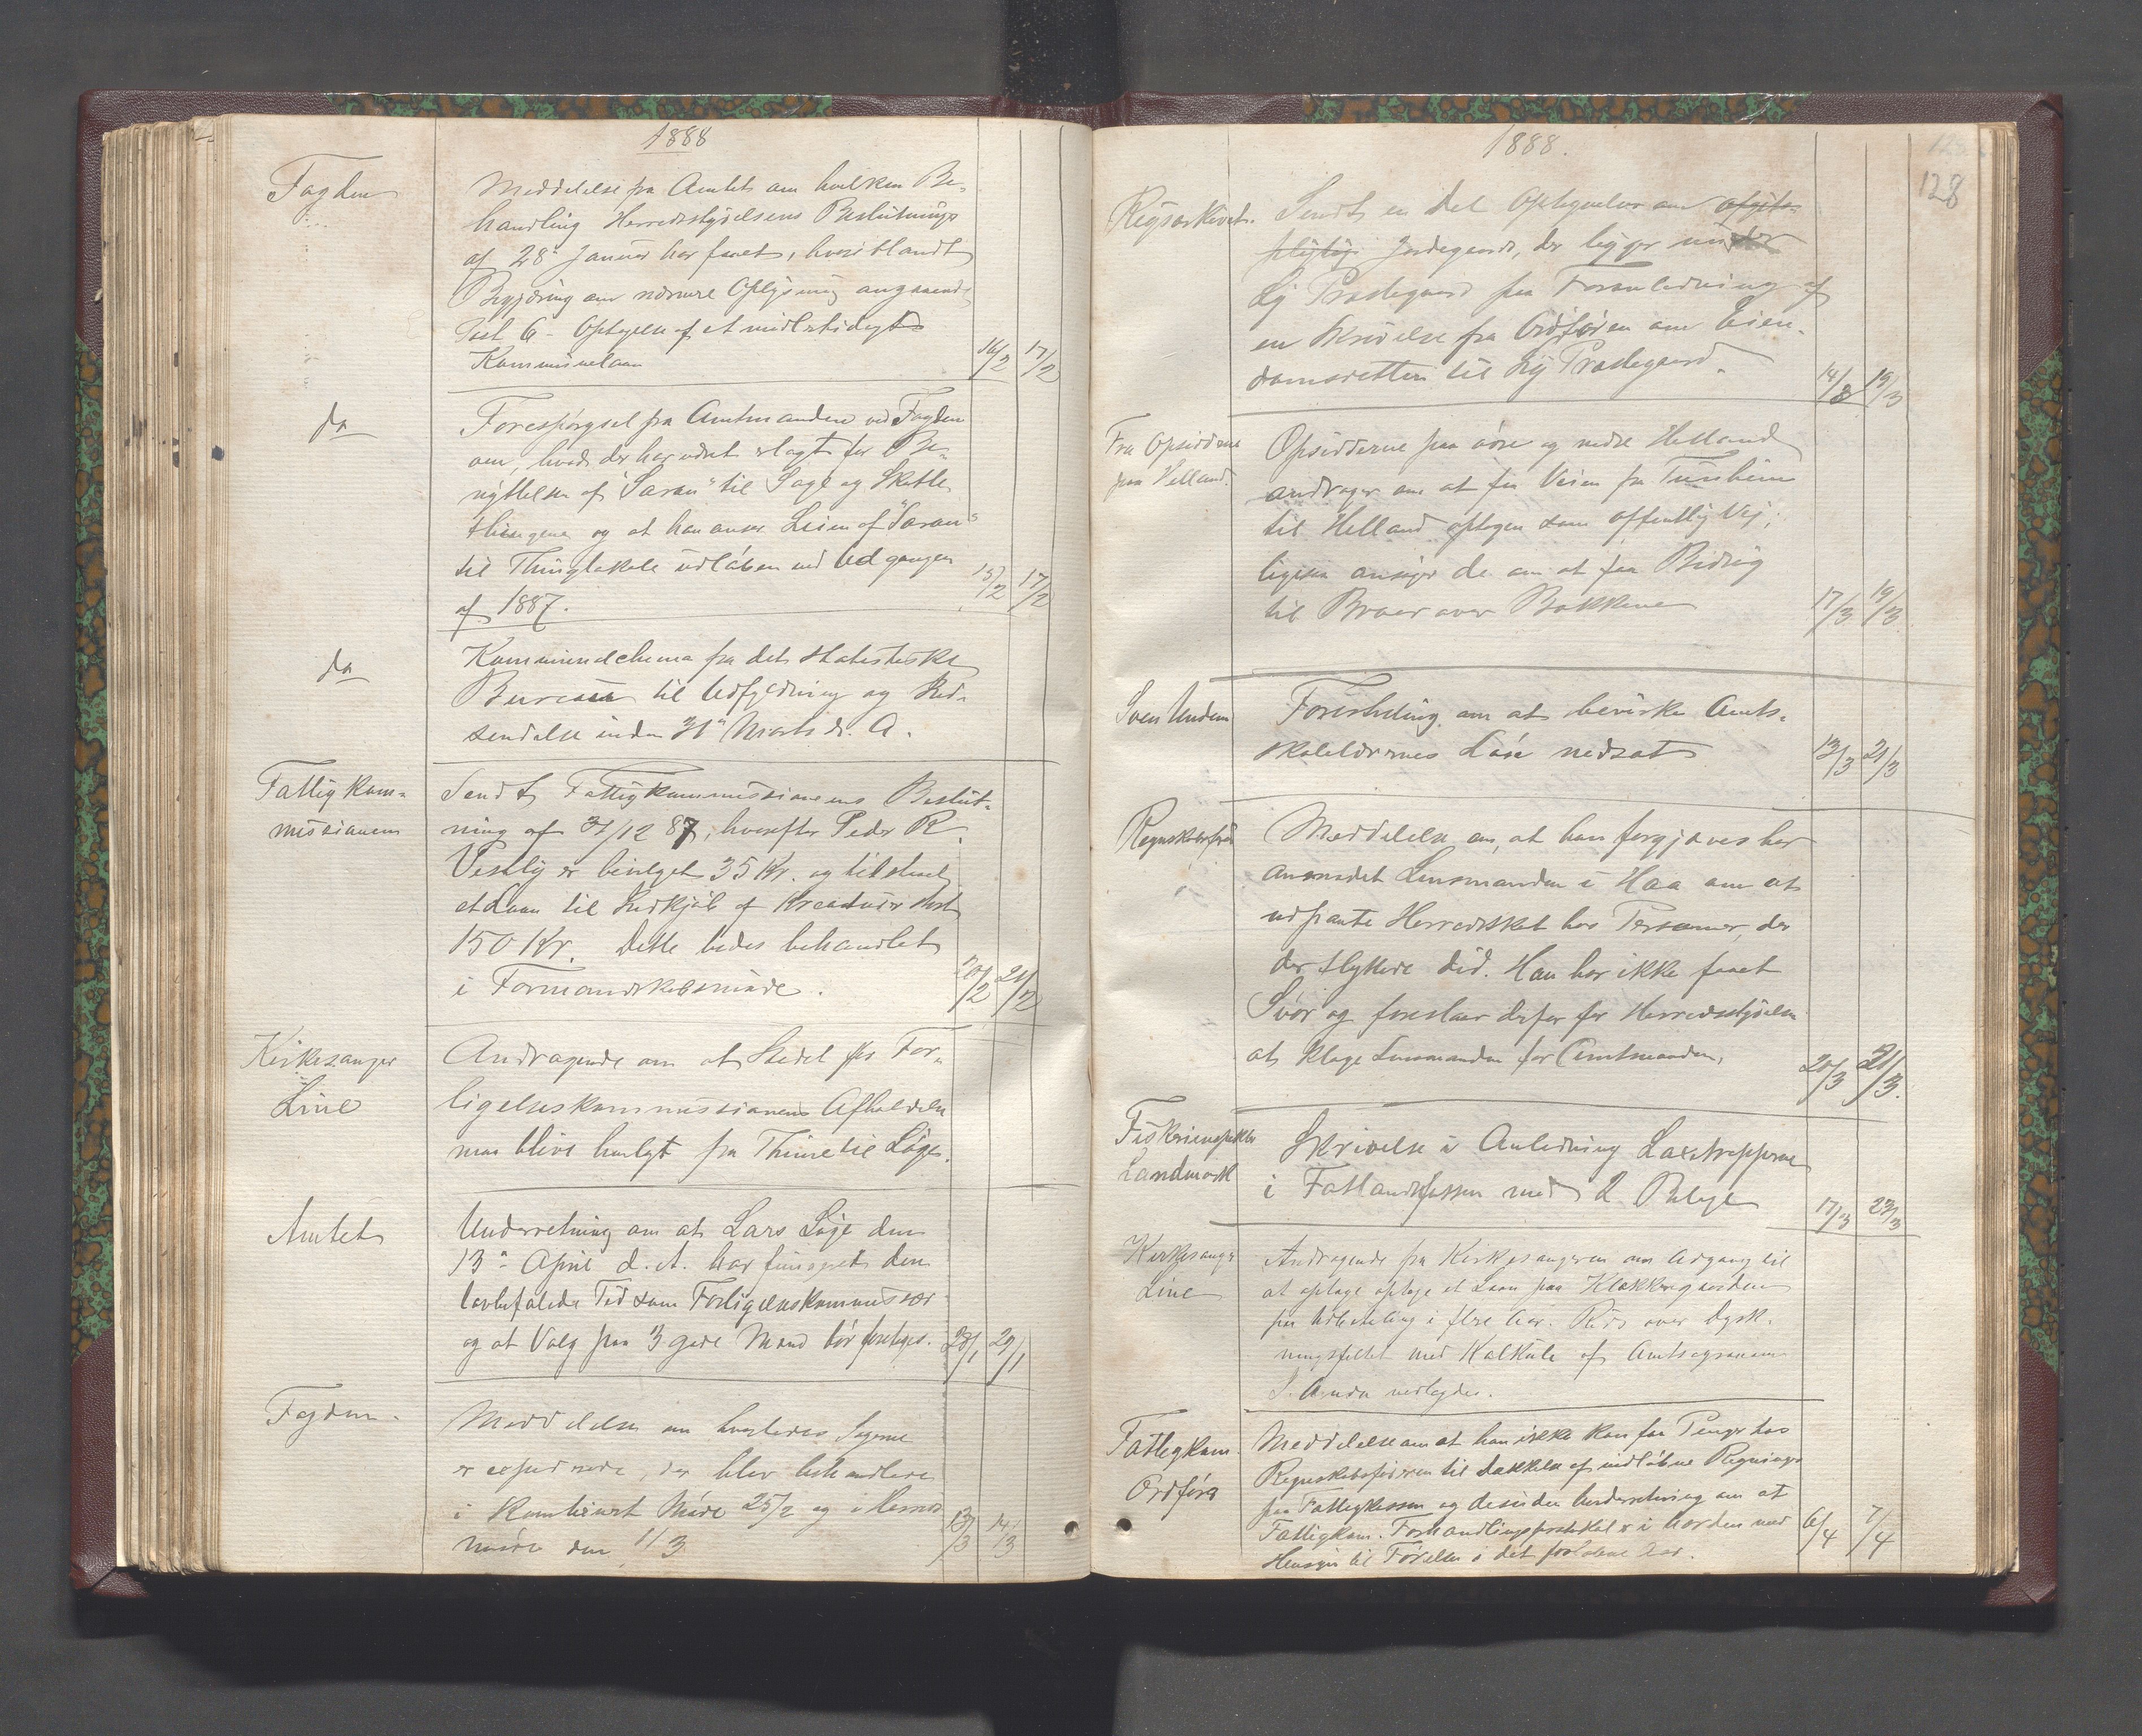 1888
Fogden
Meddelelse fra Amtet om hvilken Be-
handling Herredsstyrelsens Beslutninger
af 28de Januar har faaet, hvoriblandt
Begjæring om nærmere Oplysning angaaende
Post 6 - Optagelse af et midlertidigt
Kommunelaan
16/2 17/2
do
Forespørgsel fra Amtmanden ved Fogden
om, hvad der har været erlagt for Be-
nyttelsen af "Saron" til Sage og Skatte-
thingene og at han anser Leien af "Saron"
til Thinglokale udløben ved Udgangen
af 1887.
15/2 17/2
do
Kommuneschema fra det statistiske
Bureau til Udfyldning og Ind-
sendelse inden 31te Marts d. A.
Fattigkom-
missionen
Sendt Fattigkommissionens Beslut-
ning af 31/12 87, hvorefter Peder R.
Vestly er bevilget 35 Kr. og tilstaaet
et Laan til Indkjøb af Kreaturer stort
150 Kr. Dette bedes behandlet
i Formandskabsmøde.
20/2 21/2
Kirkesanger
Line
Andragende om at Stedet for For-
ligelseskommissionens Afholdelse
maa blive henlagt fra Thime til Lye.
Amtet
Underretning om at Lars Lye den
13de April d. A. har fungeret den
lovbefalede Tid som Forligelseskommissær
og at Valg paa 3 gode Mænd bør foretages.
28/1 29/1
Fogden.
Meddelelse om hvorledes Sagerne
er expederede, der blev behandlede
i kombineret Møde 25/2 og i Herreds
møde den 1/3
13/3 14/3
1888.
128
Rigsarkivet.
Sendt en Del Optegnelser om afgifts-
pligtige Jordegaards, der ligger under
Lye Prestegaard paa Foranledning af
en Skrivelse fra Ordføren om Eien-
domsretten til Lye Prestegaard.
14/3 19/3
Fra Opsidderne
paa Helland.
Opsidderne paa øvre og nedre Helland
andrager om at faa Veien fra Tunheim
til Helland optagen som offentlig Vej;
ligesaa ansøger de om at faa Bidrag
til Broer over Bækkene
17/3 19/3
Sven Undem
Forestilling om at bevirke Amts-
skolelærernes Løn nedsat
12/3 21/3
Regnskabsfører
Meddelelse om, at han forgjæves har
anmodet Lensmanden i Haa om at
udpante Herredsskat hos Personer, der
der flyttede did. Han har ikke faaet
Svar og foreslaar derfor for Herredsstyrelsen
at klage Lensmanden for Amtmanden.
20/3 21/3.
Fiskeriinspektør
Landmark
Skrivelse i Anledning Laxetrapperne
i Fotlandsfossen med 2 Bilage
17/3 23/3
Kirkesanger
Line
Andragende fra Kirkesangeren om Adgang til
at optage optage et Laan paa Klokkergaarden
paa Udbetaling i flere Aar. Rids over Dyrk-
ningsfeltet med Kalkule af Amtsagronom
S. Anda vedlagdes.
Fattigkom.
Ordfører
Meddelelse om at han ikke kan faa Penge hos
Regnskabsføreren til Dækkelse af indløbne Regninger
paa Fattigkassen og desuden Underretning om at
Fattigkom. Forhandlingsprotokol er i Uorden med
Hensyn til Førelsen i det forløbne Aar.
6/4 7/4